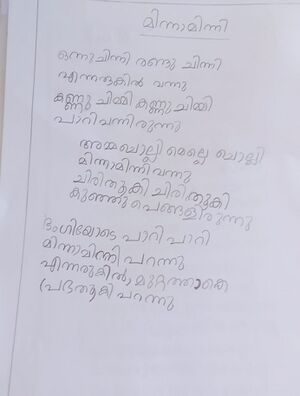 മിന്നാമിന്നി
ഒന്നു ചിന്നി രണ്ടു ചിന്നി
എന്നരുകിൽ വന്നു
കണ്ണു ചിമ്മി കണ്ണു ചിമ്മി
പാറി വന്നിരുന്നു
അമ്മ ചൊല്ലി മെല്ലെ ചൊല്ലി
മിന്നാമിന്നി വന്നു
ചിരിതൂകി ചിരിതൂകി
കുഞ്ഞു പെങ്ങളിരുന്നു
ഭംഗിയോടെ പാറി പാറി
മിന്നാമിന്നി പറന്നു
എന്നരുകിൽ, മുറ്റത്താകെ
പ്രഭതൂകി പറന്നു